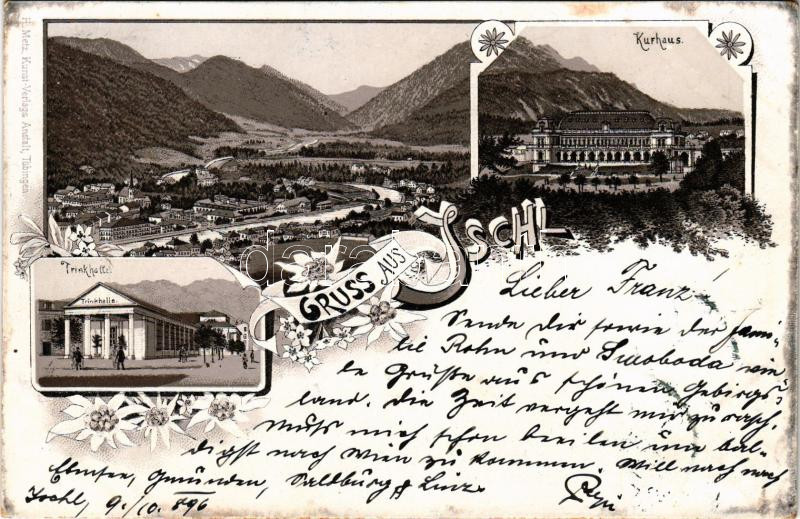 H. Metz, Kunst-Verlags Anstalt, Tübingen
Kurhaus.
GRUSS AUS ISCHL
Trinkhalle.
Trinkhalle.
Lieber Franz!
Sende Dir sowie der Fami-
lie Rohn und Swoboda vie
le Grüße aus schönen Gebirgs-
land. Die Zeit vergeht mir zu rasch.
Muß mich schon beeilen um bal-
digst nach Wien zu kommen. Will noch nach
Ebensee, Gmünden, Salzburg & Linz.
Ischl, 9./10. 896